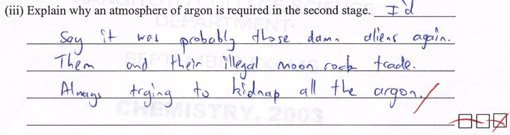 (iii) Explain why an atmosphere of argon is required in the second stage. I'd
say it was probably those damn aliens again.
Them and their illegal moon rock trade.
Always trying to kidnap all the argon.
CHEMISTRY, 2003